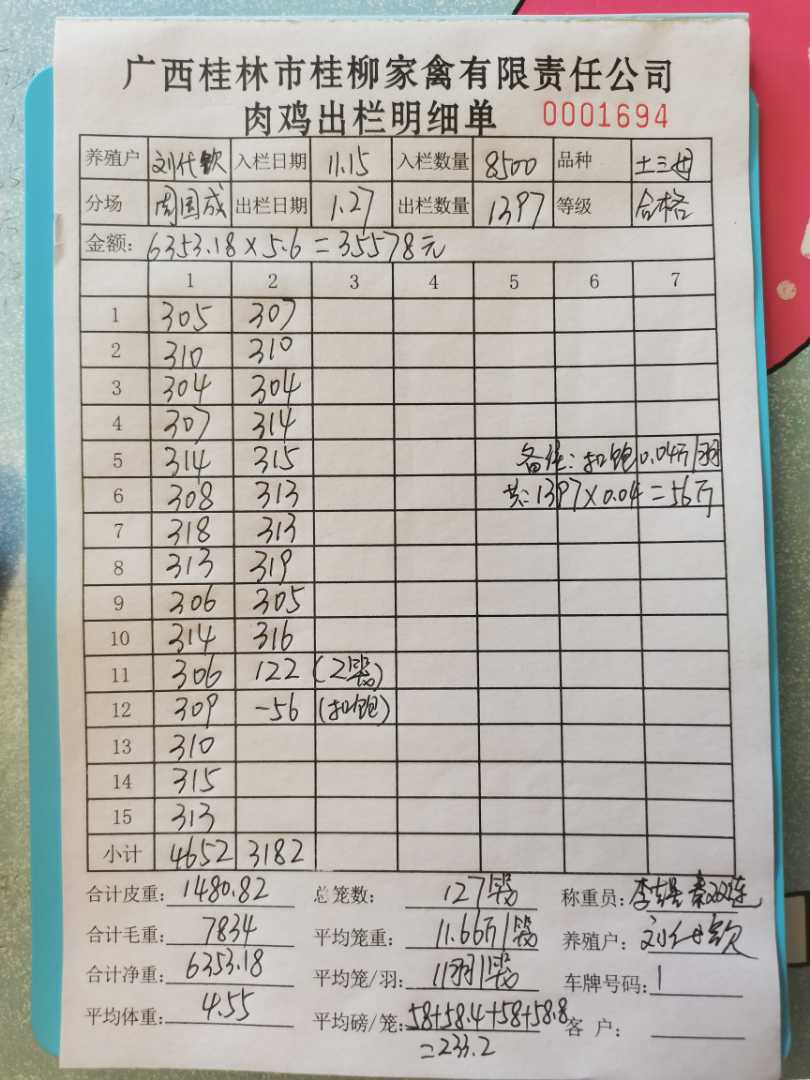 广西桂林市桂柳家禽有限责任公司
肉鸡出栏明细单 0001694
养殖户 刘代钦 入栏日期 11.15 入栏数量 8500 品种 土三母
分场 周国成 出栏日期 1.27 出栏数量 1397 等级 合格
金额: 6353.18×5.6=35578元
1 2 3 4 5 6 7
1 305 307
2 310 310
3 304 304
4 307 314
5 314 315 备注: 扣饱0.04斤/羽
6 308 313 共:1397×0.04=56斤
7 318 313
8 313 319
9 306 305
10 314 316
11 306 122 (2笼)
12 309 -56 (扣饱)
13 310
14 315
15 313
小计 4652 3182
合计皮重: 1480.82 总笼数: 127笼 称重员:
合计毛重: 7834 平均笼重: 11.66斤/笼 养殖户: 刘代钦
合计净重: 6353.18 平均笼/羽: 11羽/笼 车牌号码: 1
平均体重: 4.55 平均磅/笼: 58+58.4+58+58.8 客户:
=233.2